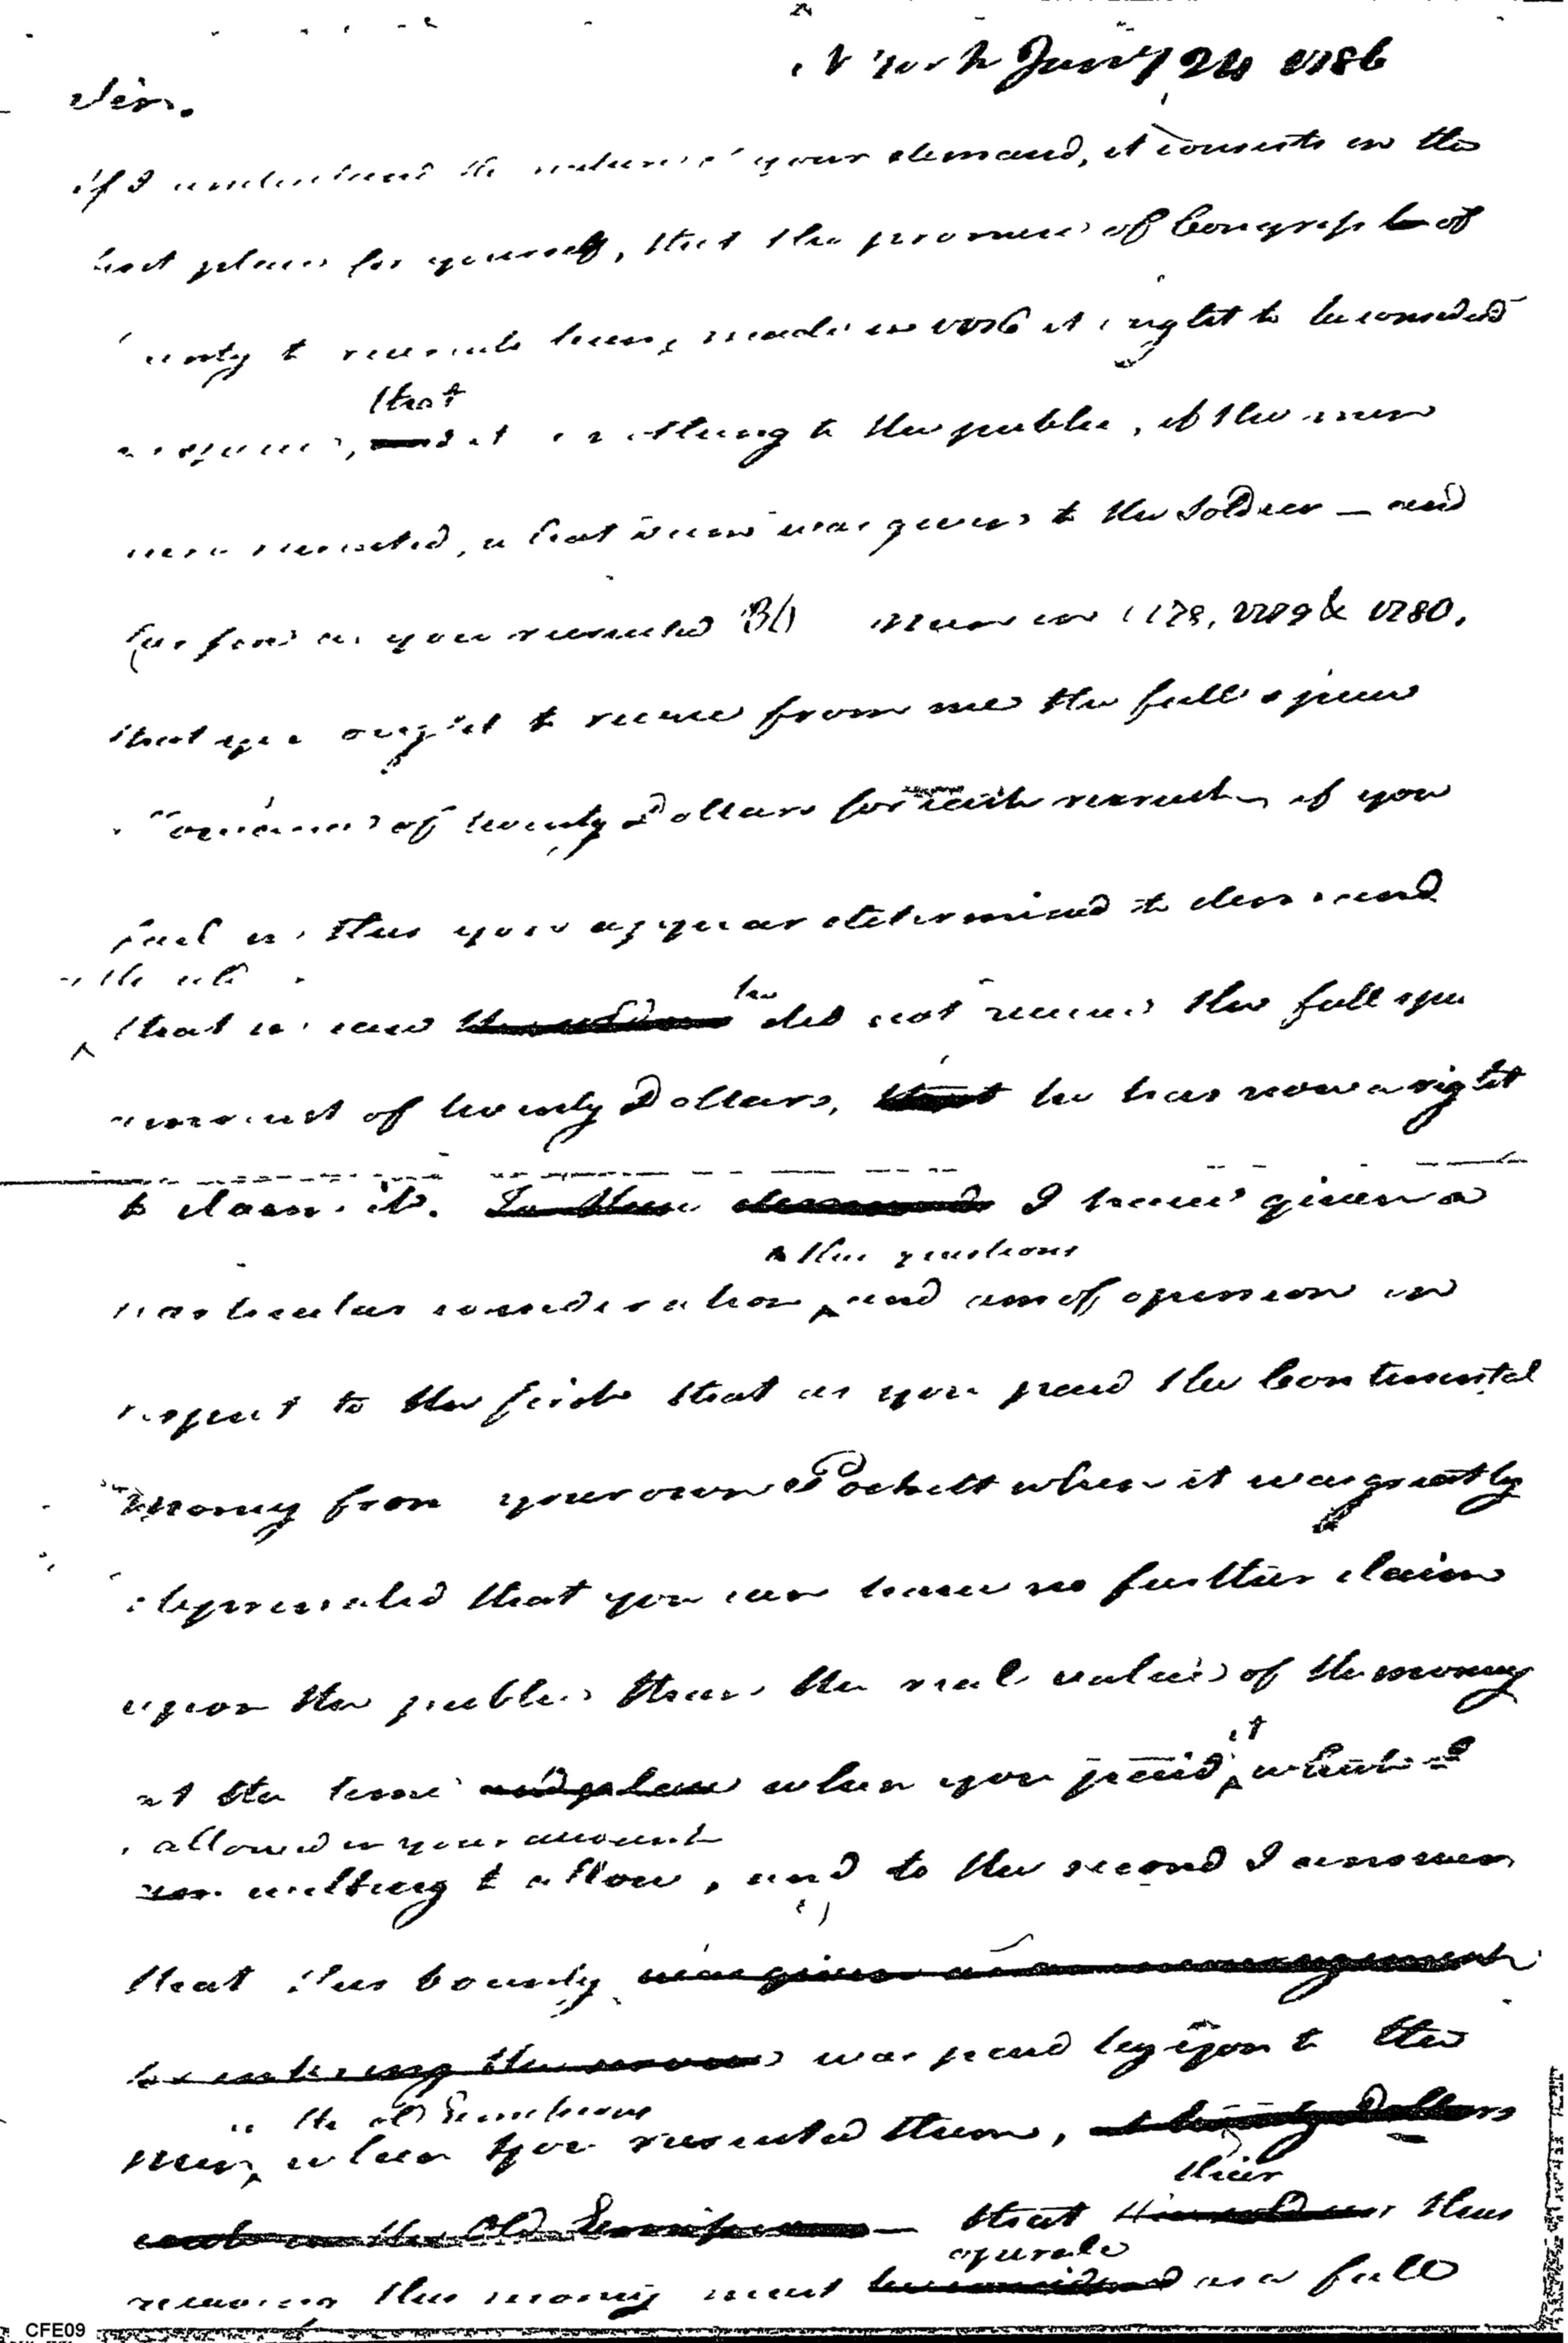 N York Jany 24 1786
Sir.
if I understand the nature of your demand, it consists in the
first place for yourself, that the promise of Congress of
bounty to recruits being made in 1776 it ought to be considered
that
as specie, it is nothing to the public, if the men
were recruited, what sum was given to the Soldier — and
as you recruited Men in 1778, 1779 & 1780.
that you ought to receive from me the full specie
of twenty Dollars for each recruit, if you
fail in this you appear determined to demand
that in case he did not receive the full specie
amount of twenty Dollars, he has now a right
to claim it. In these demands I have given a
the questions
particular consideration and am of opinion in
respect to the first that as you paid the Continental
Money from your own Pockett when it was greatly
depreciated that you can have no further claim
upon the public than the real value of the money
it
at the time and place when you paid, which I
allowed in your account
am willing to allow, and to the second I answer
that this bounty was given as an encouragement
for entering the service was paid by you to the
in the old Emissions
Men, when you recruited them, twenty Dollars
their
each in the Old Emissions — that thus
operate
receiving this money must be considered as a full
CFE09